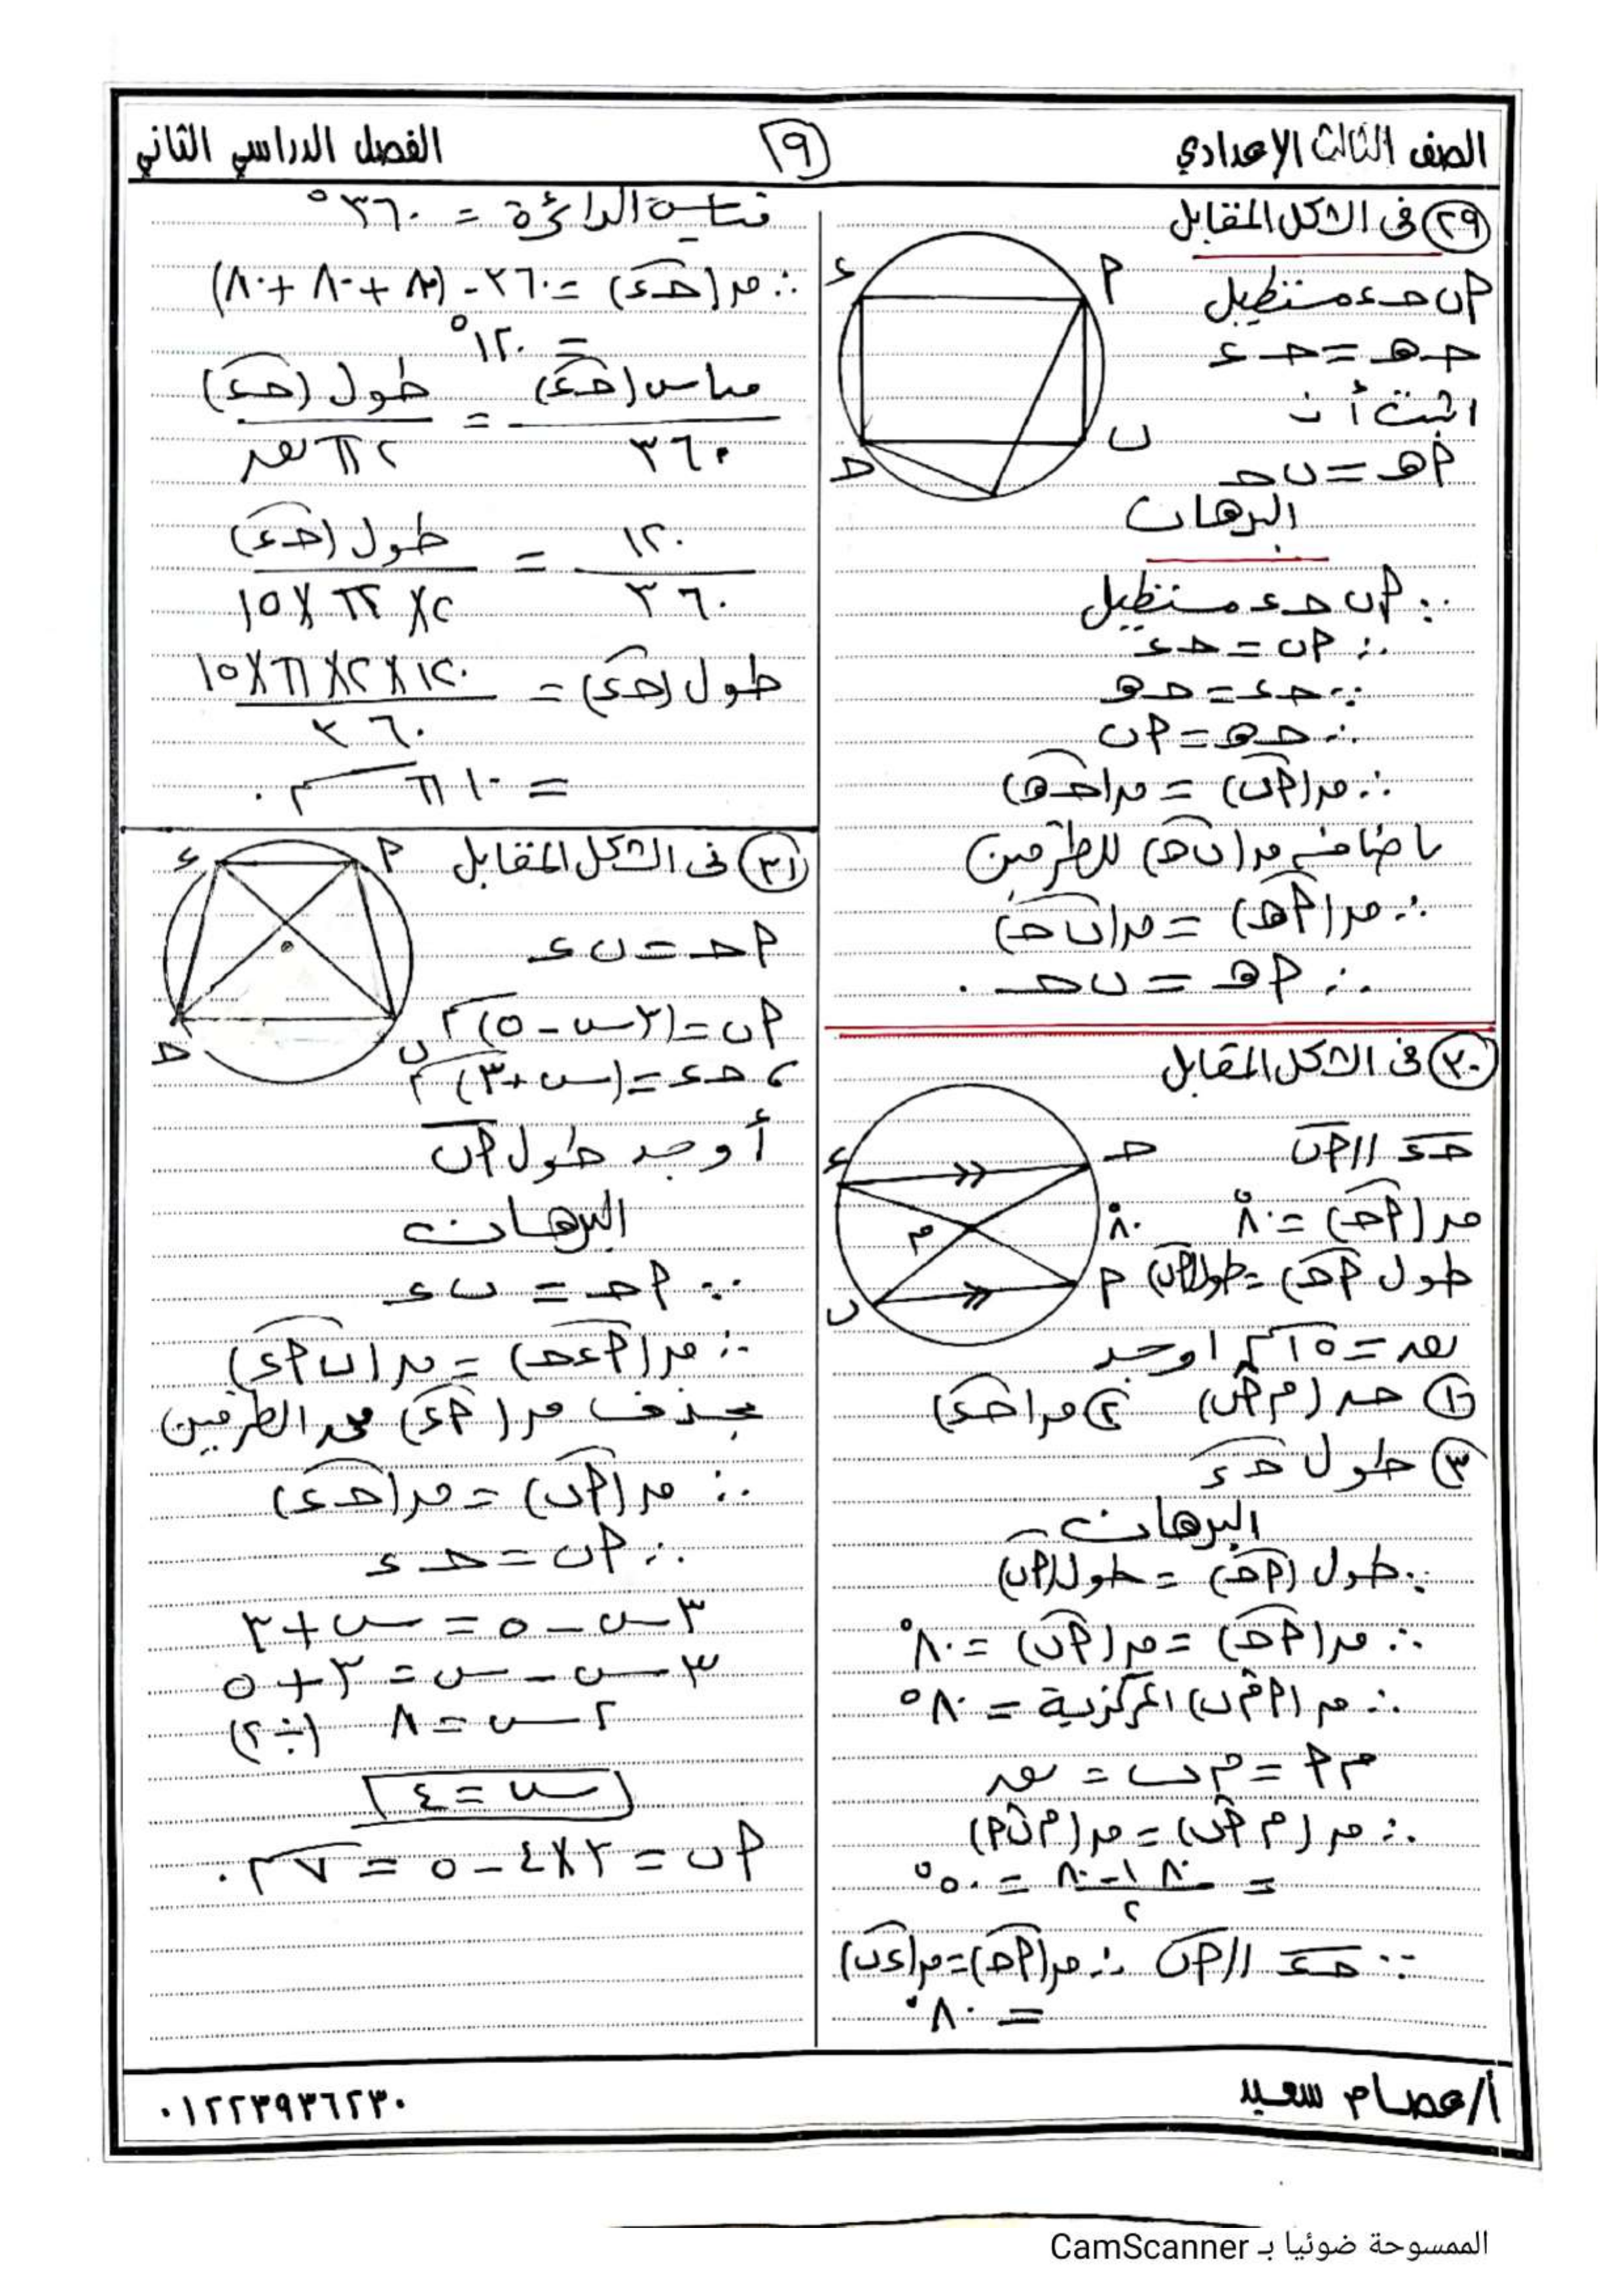 الصف الثالث الإعدادي
٩
الفصل الدراسي الثاني
٢٩ فى الشكل المقابل
P ب حـ ء مستطيل
حـ هـ = حـ ء
اثبت أن
P هـ = ب حـ
ء P ب حـ
البرهان
∵ P ب حـ ء مستطيل
∴ P ب = حـ ء
∵ حـ ء = حـ هـ
∴ حـ هـ = P ب
∴ مر (P ب) = مر (حـ هـ)
باضافة مر (ب حـ) للطرفين
∴ مر (P هـ) = مر (ب حـ)
∴ P هـ = ب حـ .
٣٠ فى الشكل المقابل
حـ ء // P ب
مر (P حـ) = ٨٠°
طول P حـ) = طول (P ب)
نق = ١٥ سم اوجد
ء حـ ٨٠° م P ب
١ مر (م P ب) ٢ مر (حـ ء)
٣ طول حـ ء
البرهان
∵ طول (P حـ) = طول (P ب)
∴ مر (P حـ) = مر (P ب) = ٨٠°
∴ مر (P م ب) المركزية = ٨٠°
م P = م ب = نق
∴ مر (م P ب) = مر (م ب P)
= ١٨٠ - ٨٠ / ٢ = ٥٠°
∵ حـ ء // P ب ∴ مر (P حـ) = مر (ء ب)
= ٨٠°
قياس الدائرة = ٣٦٠°
∴ مر (حـ ء) = ٣٦٠ - (٨٠ + ٨٠ + ٨٠)
= ١٢٠°
قياس (حـ ء) / ٣٦٠ = طول (حـ ء) / ٢ π نق
١٢٠ / ٣٦٠ = طول (حـ ء) / ٢ × π × ١٥
طول (حـ ء) = ١٢٠ × ٢ × π × ١٥ / ٣٦٠
= ١٠ π سم .
٣١ فى الشكل المقابل
P حـ = ب ء
P ب = (٣س - ٥) سم
، حـ ء = (س + ٣) سم
ء P حـ ب
أوجد طول P ب
البرهان
∵ P حـ = ب ء
∴ مر (P ء حـ) = مر (ب P ء)
بحذف مر (P ء) من الطرفين
∴ مر (P ب) = مر (حـ ء)
∴ P ب = حـ ء
٣س - ٥ = س + ٣
٣س - س = ٣ + ٥
٢س = ٨ (÷ ٢)
س = ٤
P ب = ٣ × ٤ - ٥ = ٧ سم .
أ/عصام سعيد
٠١٢٢٣٩٣٦٢٣٠
الممسوحة ضوئيا بـ CamScanner